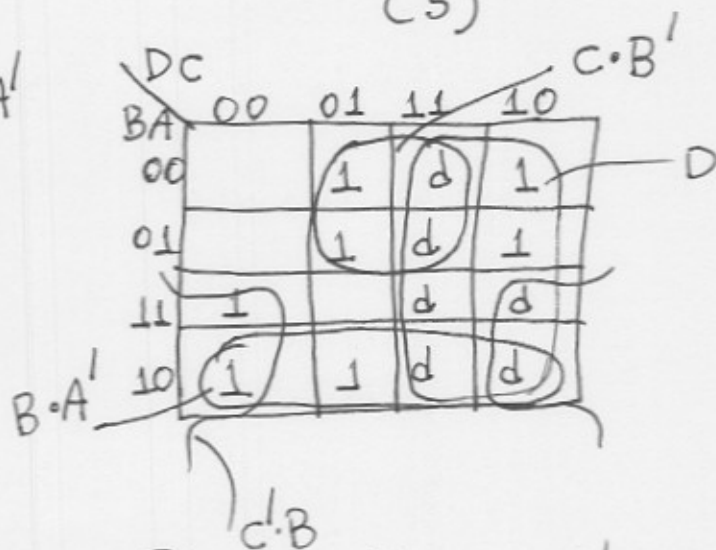 (3)
A'
DC
C·B'
BA 00 01 11 10
00 1 d 1 D
01 1 d 1
11 1 d d
10 1 1 d d
B·A'
C'·B